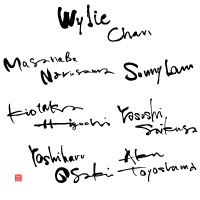 Wylie
Chan
Masanobu
Narusawa
Sonny Lam
Kiotaka
Higuchi
Yasushi
Saikusa
Yoshiharu
Osaki
Akon
Toyoshima